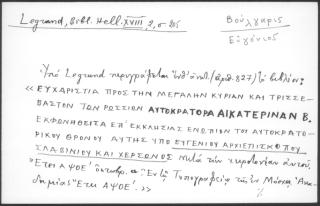 Legrand, Bibl. Hell. XVIII, 2, σ 205
Βούλγαρις
Εὐγένιος
Ὑπὸ Legrand περιγράφεται ὑπ' ἀριθ. (ἀριθ. 827) τὸ βιβλίον:
« ΕΥΧΑΡΙΣΤΙΑ ΠΡΟΣ ΤΗΝ ΜΕΓΑΛΗΝ ΚΥΡΙΑΝ ΚΑΙ ΤΡΙΣΣΕ-
ΒΑΣΤΟΝ ΤΩΝ ΡΩΣΣΙΩΝ ΑΥΤΟΚΡΑΤΟΡΑ ΑΙΚΑΤΕΡΙΝΑΝ Β.
ΕΚΦΩΝΗΘΕΙΣΑ ΕΠ' ΕΚΚΛΗΣΙΑΣ ΕΝΩΠΙΟΝ ΤΟΥ ΑΥΤΟΚΡΑΤΟ-
ΡΙΚΟΥ ΘΡΟΝΟΥ ΑΥΤΗΣ ΥΠΟ ΕΥΓΕΝΙΟΥ ΑΡΧΙΕΠΙΣΚΟΠΟΥ
ΣΛΑΒΙΝΙΟΥ ΚΑΙ ΧΕΡΣΩΝΟΣ μετὰ τὴν χειροτονίαν αὐτοῦ.
Ἔτει ΑΨΟΕ΄ ὀκτωβρ. Ἐν τῇ Τυπογραφείᾳ τῆς ἐν Μόσχᾳ Ἀκα-
δημίας Ἔτει ΑΨΟΕ΄. »